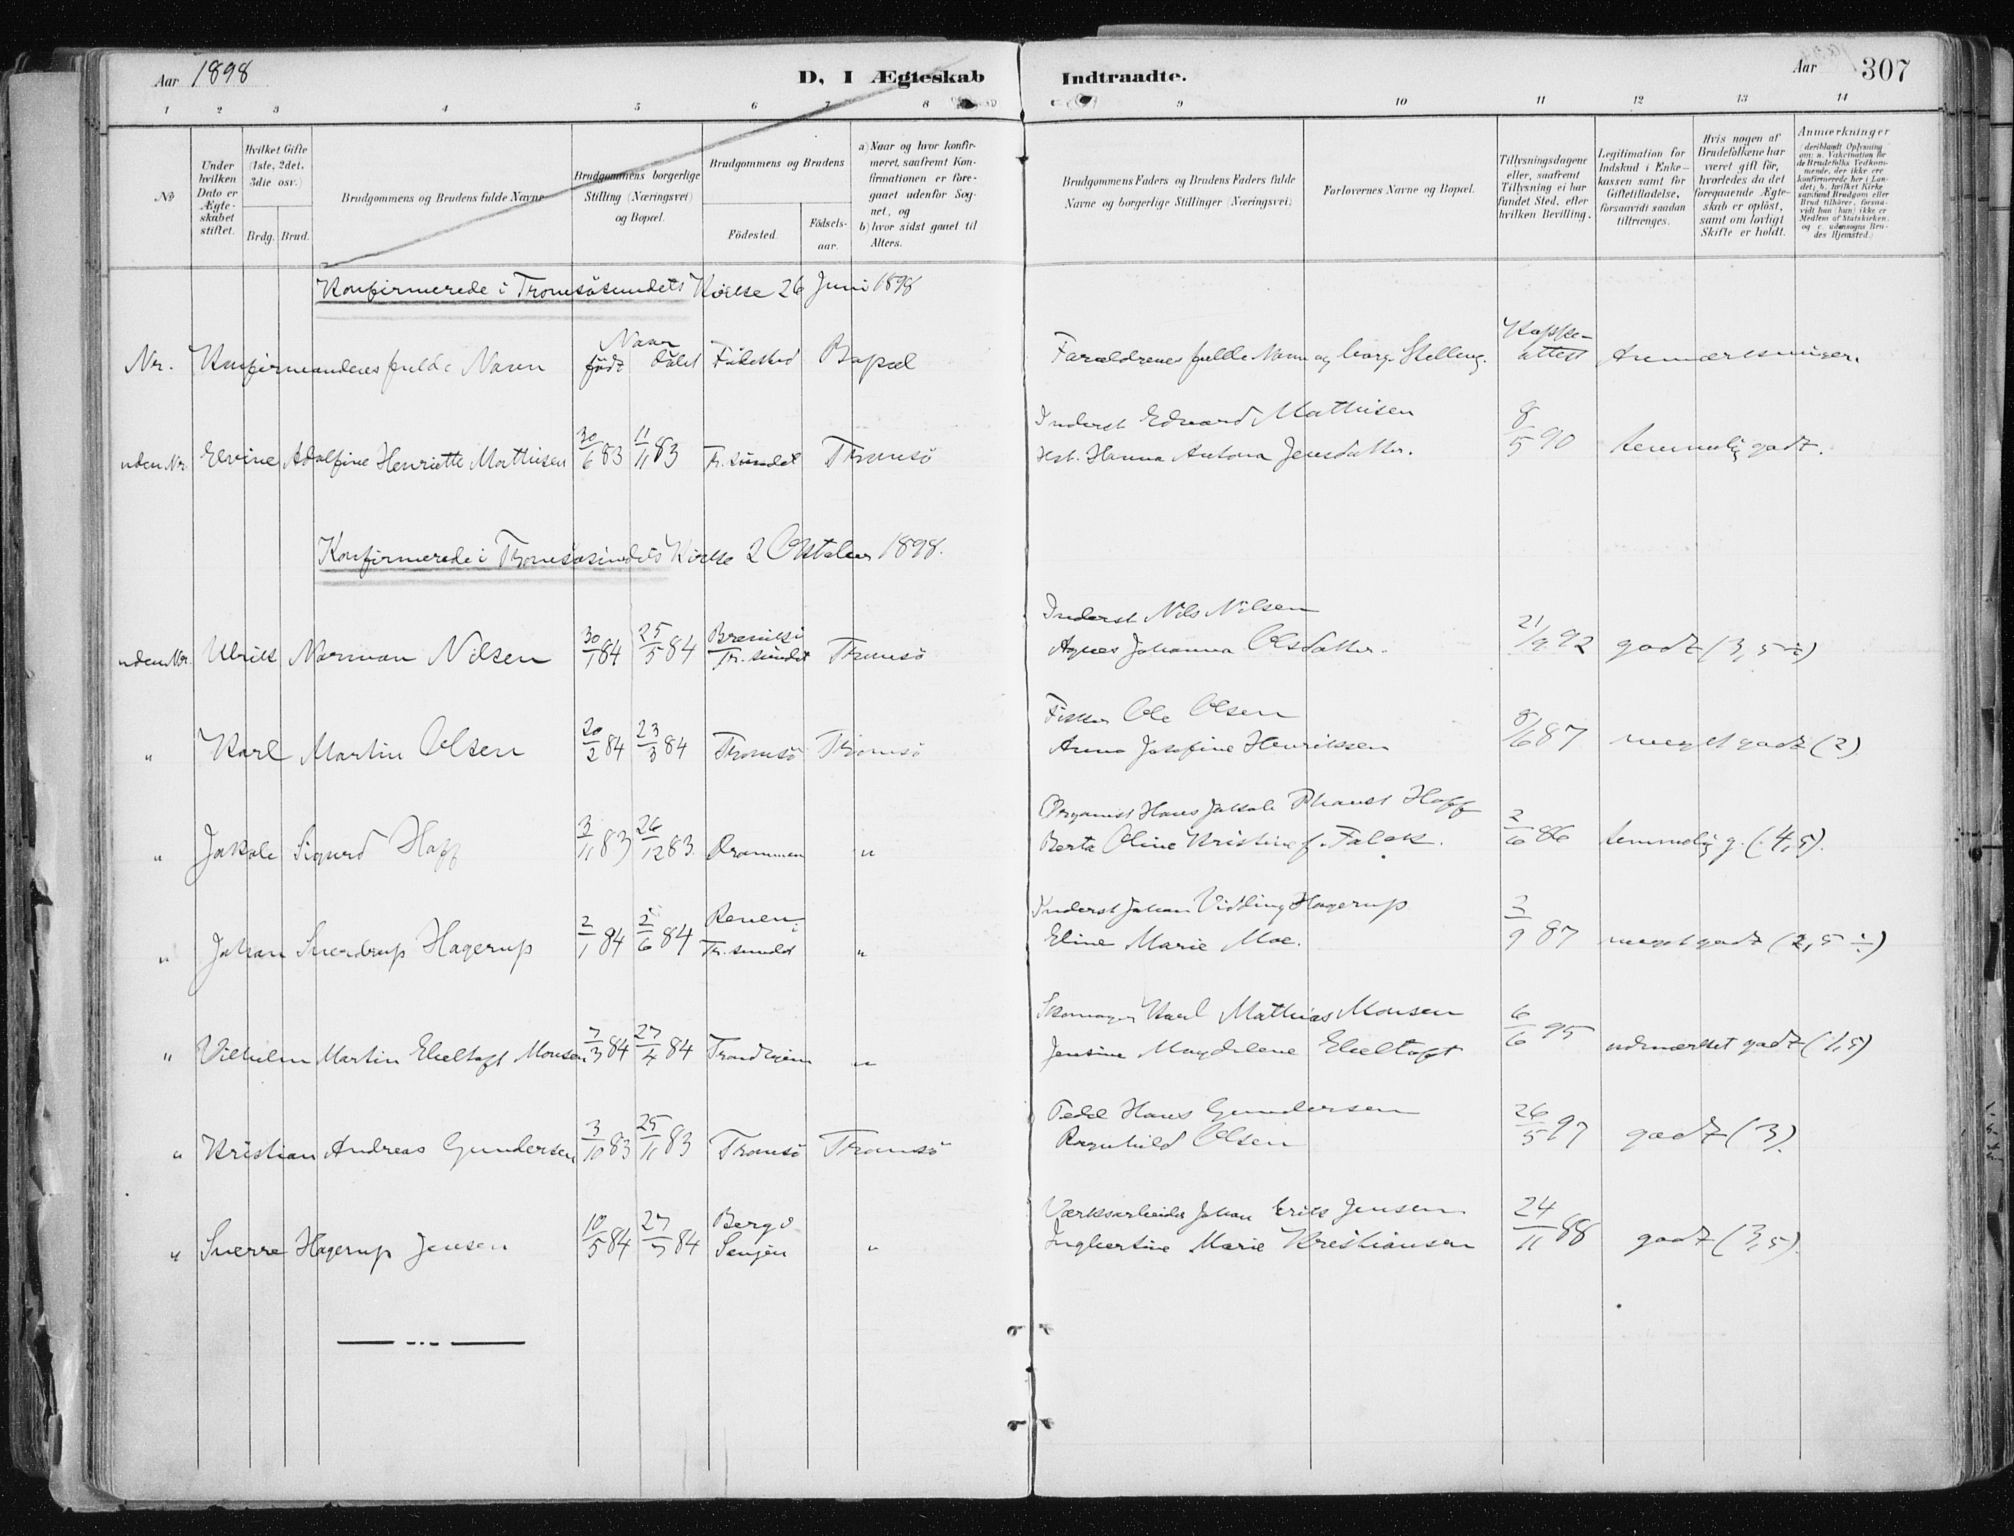 Aar 1898
D, I Ægteskab Indtraadte.
Aar 307
1 2 3 4 5 6 7 8 9 10 11 12 13 14
No
Under hvilken Dato er Ægteskabet stiftet.
Hvilket Gifte (1ste, 2det, 3die osv.)
Brdg. Brud.
Brudgommens og Brudens fulde Navne
Brudgommens borgerlige Stilling (Næringsvei) og Bopæl.
Brudgommens og Brudens
Födested. Födselsaar.
a) Naar og hvor konfirmeret, saafremt Konfirmationen er foregaaet udenfor Sognet, og
b) hvor sidst gaaet til Alters.
Brudgommens Faders og Brudens Faders fulde Navne og borgerlige Stillinger (Næringsvei)
Forlovernes Navne og Bopæl.
Tillysningsdagene eller, saafremt Tillysning ei har fundet Sted, efter hvilken Bevilling.
Legitimation for Indskud i Enkekassen samt for Giftetilladelse, forsaavidt saadan tiltrænges.
Hvis nogen af Brudefolkene har været gift för, hvorledes da det foregaaende Ægteskab er oplöst, samt om lovligt Skifte er holdt.
Anmærkninger
(deriblandt Oplysning om: a. Vakcination for de Brudefolks Vedkommende, der ikke ere konfirmerede her i Landet; b. hvilket Kirkesamfund Brudgom eller Brud tilhörer, forsaavidt han (hun) ikke er Medlem af Statskirken; og c. udensogns Brudes Hjemsted.)
Konfirmerede i Tromsösundets Kirke 26 Juni 1898
Nr. Konfirmandenes fulde Navn Naar födt döbt Födested Bopæl Forældrenes fulde Navn og borg. Stilling. Koppeattest Anmærkninger.
Inderst Edvard Mathisen
uden Nr. Elvine Adolfine Henriette Mathisen 30/6 83 11/11 83 Tr. sundet Tromsö Hanna Antona Jensdatter. 8/5 90 temmelig godt.
Konfirmerede i Tromsösundets Kirke 2 Oktober 1898.
Inderst Nils Nilsen
uden Nr. Ulrik Norman Nilsen 30/1 84 25/5 84 Tr. sundet Tromsö Agnes Johanna Olsdatter. 21/9 92 godt (3,5 ÷)
Fisker Ole Olsen
" Karl Martin Olsen 20/2 84 23/3 84 Tromsö Tromsö Anna Josefine Henrikssen 8/6 87 meget godt (2)
Organist Hans Jakob Hoff
" Jakob Sigurd Hoff 3/11 83 26/12 83 Drammen " Berta Oline Kristine f. Falck. 2/6 86 temmelig g. (4,5).
Inderst Johan Hagerup
" Johan Sverdrup Hagerup 2/1 84 2/6 84 Tr. sundet " Eline Marie Moe. 3/9 87 meget godt (2,5 ÷)
Skomager Karl Mathias Monsen
" Vilhelm Martin Ebeltoft Monsen 7/3 84 27/4 84 Trondhjem " Jensine Magdelene Ebeltoft 6/6 95 udmærket godt (1,5)
Hans Gundersen
" Kristian Andreas Gundersen 3/10 83 25/11 83 Tromsö Tromsö Ragnhild Olsen 26/5 97 godt (3).
Værksarbeider Johan Erik Jensen
" Sverre Hagerup Jensen 10/5 84 27/7 84 Berg Senjen " Ingbertine Marie Kristiansen 24/11 88 godt (3,5).